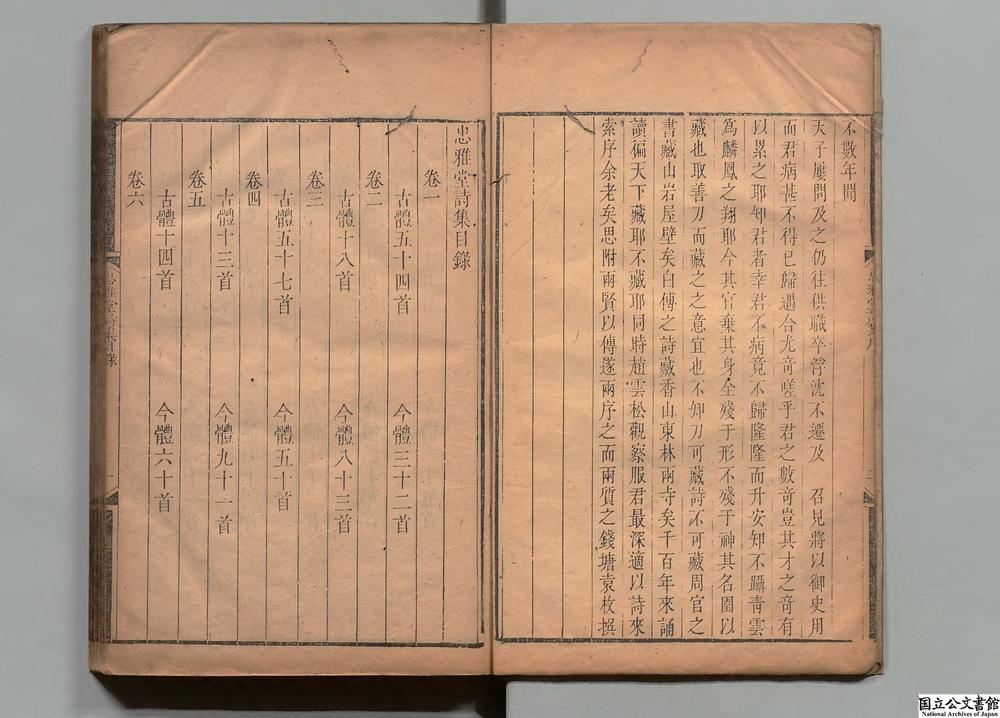 不數年間
天子屢問及之仍往供職卒浮沈不遷及　召見將以御史用
而君病甚不得已歸遇合尤奇嗟乎君之數奇豈其才之奇有
以累之耶知君者幸君不病竟不歸隆隆而升安知不躡青雲
為麟鳳之翔耶今其官棄其身全殘于形不殘于神其名園以
藏也取善刀而藏之之意宜也不知刀可藏詩不可藏周官之
書藏山岩屋壁矣白傅之詩藏香山東林兩寺矣千百年來誦
讀徧天下藏耶不藏耶同時趙雲松觀察服君最深適以詩來
索序余老矣思附兩賢以傳遂兩序之而兩質之錢塘袁枚撰
忠雅堂詩集目錄
卷一
古體五十四首　今體三十二首
卷二
古體十八首　今體八十三首
卷三
古體五十七首　今體五十首
卷四
古體十三首　今體九十一首
卷五
古體十四首　今體六十首
卷六
忠雅堂詩集目錄
一
国立公文書館
National Archives of Japan